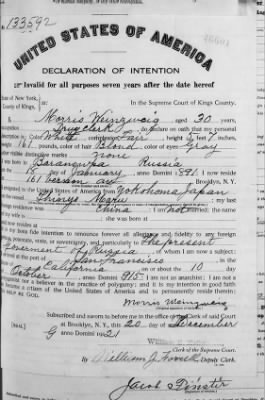 133592
UNITED STATES OF AMERICA
DECLARATION OF INTENTION
Invalid for all purposes seven years after the date hereof
State of New York,
County of Kings,
In the Supreme Court of Kings County.
I, Morris aged 30 years,
occupation Drug Clerk, do declare on oath that my personal
description is: Color White, complexion Fair, height 5 feet 7 inches,
weight 161 pounds, color of hair Blond, color of eyes Gray
other visible distinctive marks none
Russia
on the 15 day of January, anno Domini 1891; I now reside
at 161 av, Brooklyn, N.Y.
I emigrated to the United States of America from Yokohama Japan
on the vessel Maru; my last
foreign residence was China; I am not married; the name
she was born at
It is my bona fide intention to renounce forever all allegiance and fidelity to any foreign
prince, potentate, state, or sovereignty, and particularly to The present
Government of Russia, of whom I am now a subject;
I arrived at the port of San Francisco, in the
State of California on or about the 10 day
of October, anno Domini 1915; I am not an anarchist; I am not a
polygamist nor a believer in the practice of polygamy; and it is my intention in good faith
to become a citizen of the United States of America and to permanently reside therein:
SO HELP ME GOD.
Morris
Subscribed and sworn to before me in the office of the Clerk of said Court
[SEAL] at Brooklyn, N.Y., this 20 day of December
anno Domini 1921
Clerk of the Supreme Court.
By William J. Deputy Clerk.
Jacob